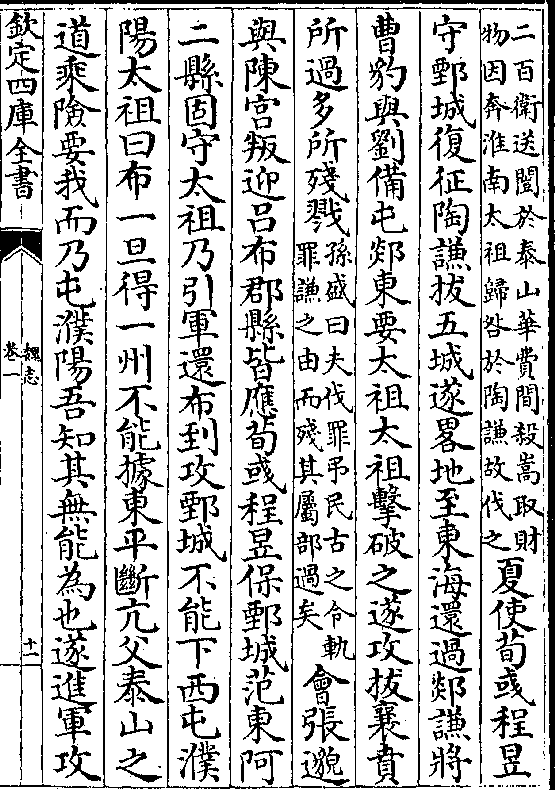 二百衛送闓於泰山華費間殺嵩取財
物因奔淮南太祖歸咎於陶謙故伐之
夏使荀彧程昱
守鄄城復征陶謙拔五城遂畧地至東海還過郯謙將
曹豹與劉備屯郯東要太祖太祖擊破之遂攻拔襄賁
所過多所殘戮
孫盛曰夫伐罪弔民古之令軌
罪謙之由而殘其屬部過矣
會張邈
與陳宮叛迎吕布郡縣皆應荀彧程昱保鄄城范東阿
二縣固守太祖乃引軍還布到攻鄄城不能下西屯濮
陽太祖曰布一旦得一州不能據東平斷亢父泰山之
道乘險要我而乃屯濮陽吾知其無能為也遂進軍攻
欽定四庫全書
魏志
卷一
十一